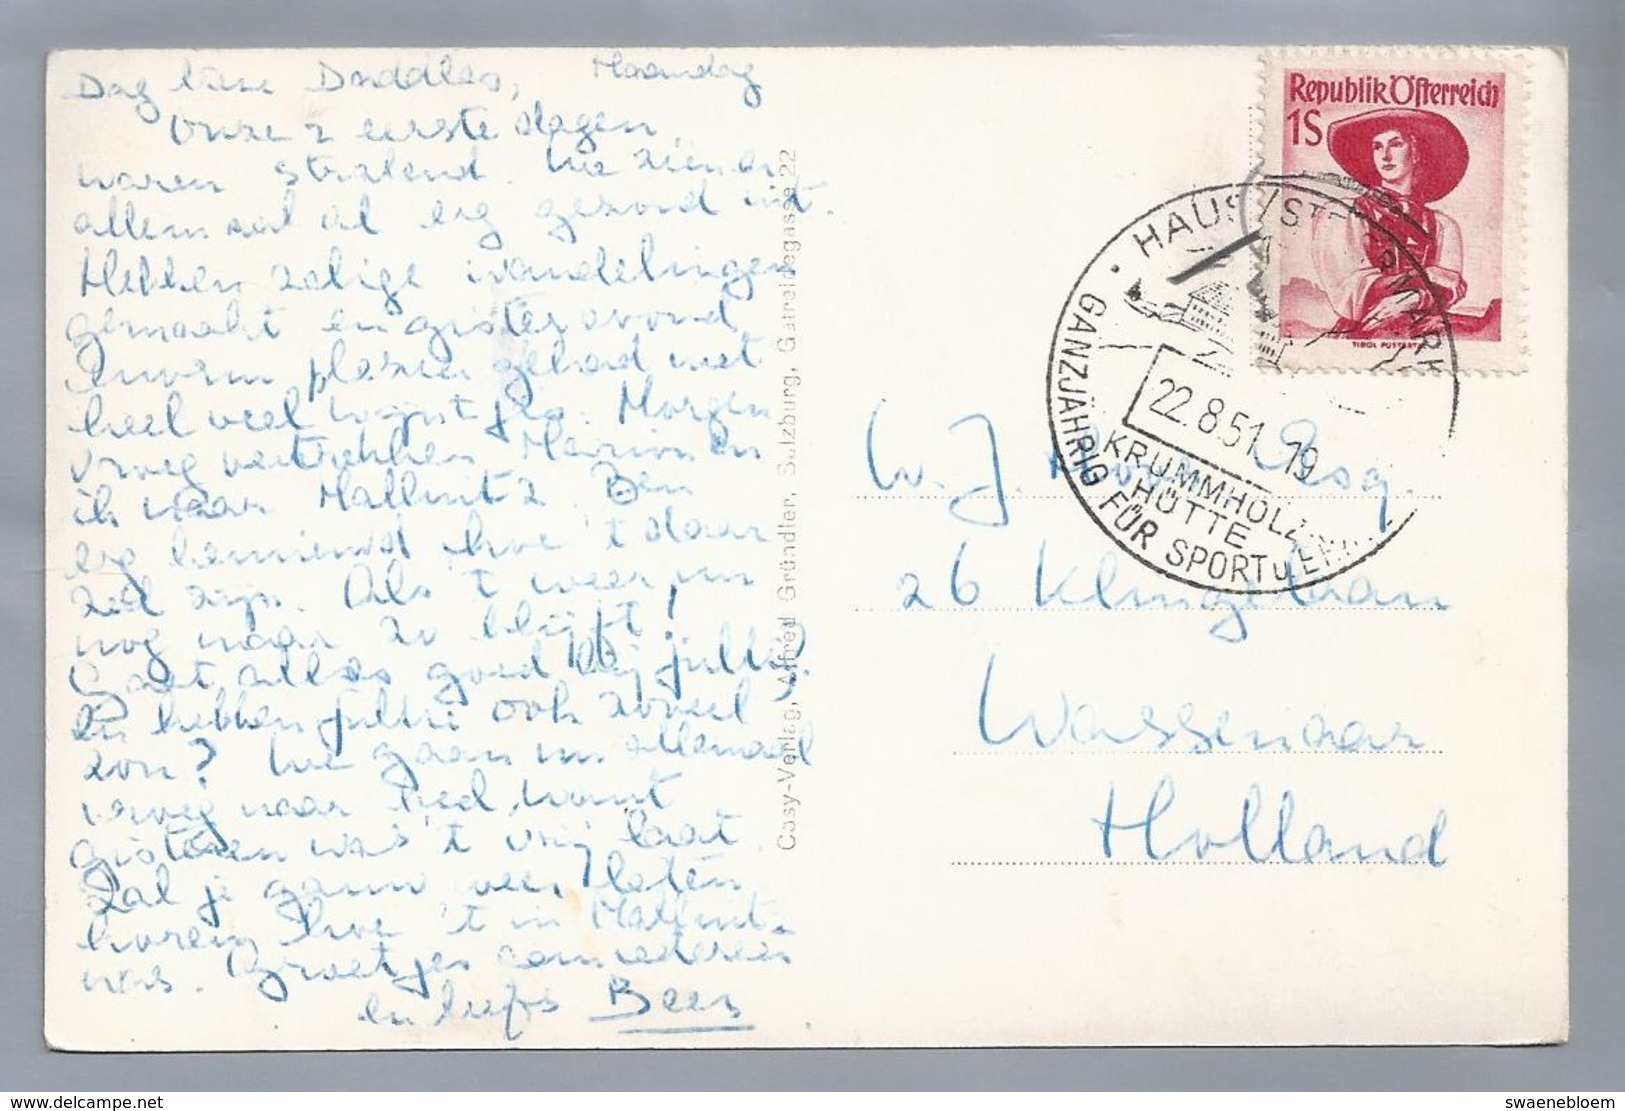 Dag lieve Daddles, Maandag
Onze 2 eerste dagen
waren stralend. We zien er
allemaal al erg gezond uit.
Hebben zalige wandelingen
gemaakt en gisteravond
enorm plezier gehad met
heel veel wijst fls. Morgen
vroeg vertrekken Marion en
ik naar Mallnitz. Ben
erg benieuwd hoe 't daar
zal zijn. Als 't weer nu
nog maar zo blijft!
Gaat alles goed bij jullie?
En hebben jullie ook zoveel
zon? We gaan nu allemaal
vroeg naar bed, want
gisteren was 't vrij laat.
Zal je gauw weer laten
horen hoe 't in Mallnitz
was. Groetjes aan iedereen
en liefs Bees
Cosy-Verlag, Alfred Gründler, Salzburg, Getreidegasse 22
Republik Österreich
1S
TIROL PUSTERTAL
HAUS / STEIERMARK
22.8.51 19
KRUMMHOLZ
HÜTTE
GANZJÄHRIG FÜR SPORT u
W. J. Esq.
26 Klingelaan
Wassenaar
Holland
swaenebloem
www.delcampe.net